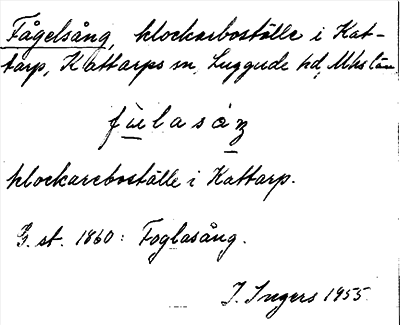 Fågelsång, klockarboställe i Kat-
tarp, Kattarps sn, Luggude hd, Mhs län
fùlasáŋ
klockareboställe i Kattarp.
G. st. 1860: Foglasång.
I. Ingers 1955.